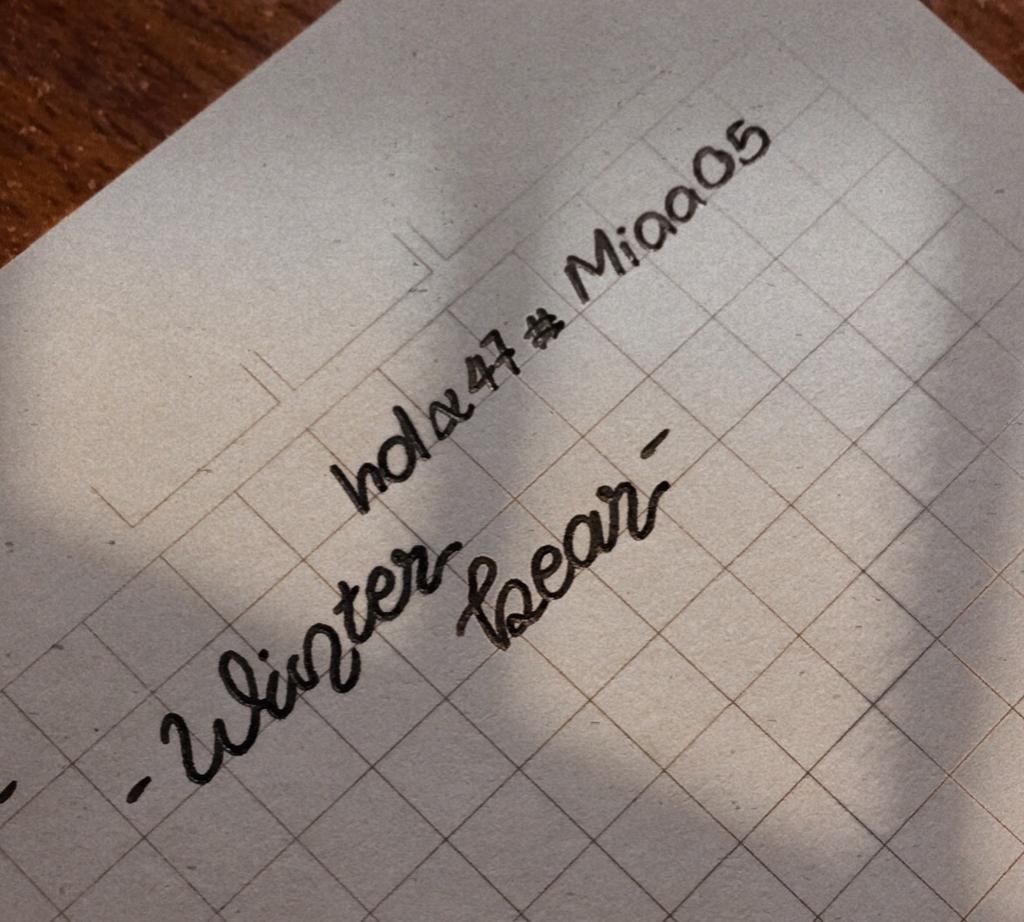 holα47 # Miaa05
- Winter bear -